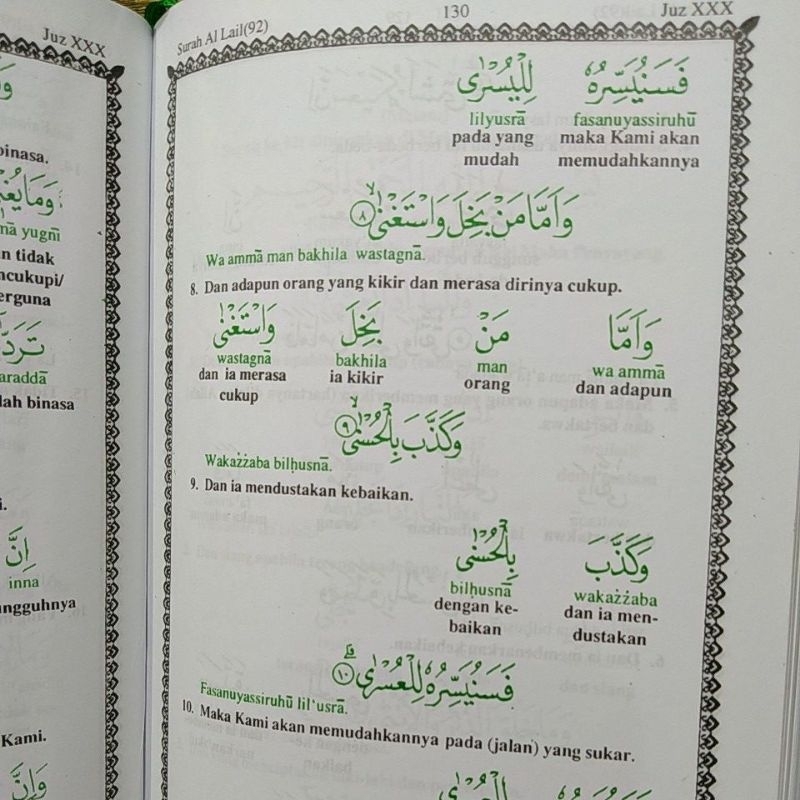 Juz XXX
binasa.
yugnī
tidak
erguna
تَرَدّٰى
aradda
binasa
اِنَّ
inna
ngguhnya
Kami.
وَاِنَّ
Surah Al Lail(92) 130 Juz XXX
فَسَنُيَسِّرُهٗ لِلْيُسْرٰى
fasanuyassiruhū lilyusrā
maka Kami akan pada yang
memudahkannya mudah
وَاَمَّا مَنْۢ بَخِلَ وَاسْتَغْنٰىۙ ﴿٨﴾
Wa ammā man bakhila wastagnā.
8. Dan adapun orang yang kikir dan merasa dirinya cukup.
وَاَمَّا مَنْۢ بَخِلَ وَاسْتَغْنٰى
wa ammā man bakhila wastagnā
dan adapun orang ia kikir dan ia merasa
cukup
وَكَذَّبَ بِالْحُسْنٰىۙ ﴿٩﴾
Wakażżaba bilḥusnā.
9. Dan ia mendustakan kebaikan.
وَكَذَّبَ بِالْحُسْنٰى
wakażżaba bilḥusnā
dan ia men- dengan ke-
dustakan baikan
فَسَنُيَسِّرُهٗ لِلْعُسْرٰىۗ ﴿١٠﴾
Fasanuyassiruhū lil‘usrā.
10. Maka Kami akan memudahkannya pada (jalan) yang sukar.